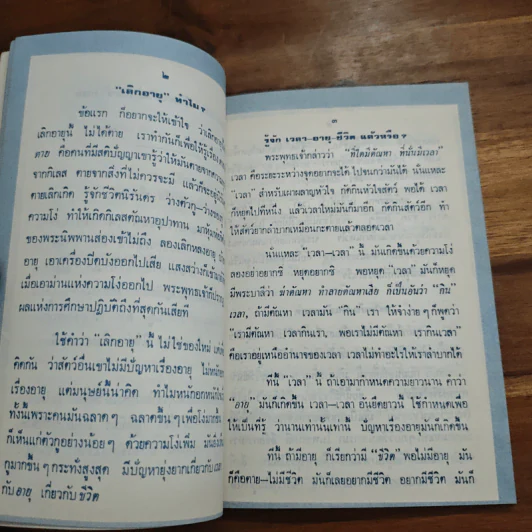 ๒
"เลิกอายุ" ทำไม?
ข้อแรก ก็อยากจะให้เข้าใจ ว่าเลิกอายุ
เลิกอายุนี้ ไม่ได้ตาย เราทำกันก็เพื่อให้รู้เรื่อง
ตาย คือคนที่มีสติปัญญาเขารู้ว่าให้มันตายจาก
จากกิเลส ตายจากสิ่งที่ไม่ควรจะมี แล้วก็จะ
ตายเลิกเกิด รู้จักชีวิตนิรันดร ว่างตัวกู-ว่างของ
ความโง่ ทำให้เกิดกิเลสตัณหาอุปาทาน
ของพระนิพพานส่องเข้าไม่ถึง ลองเลิกหลงอายุ
อายุ เอาเครื่องปิดบังออกไปเสีย แสงสว่างก็เข้า
เมื่อเอาม่านแห่งความโง่ออกไป พระพุทธเจ้าก็
ผลแห่งการศึกษาปฏิบัติถึงที่สุดกันเสียที
ใช้คำว่า "เลิกอายุ" นี้ ไม่ใช่ของใหม่
คิดกัน ว่าสัตว์อื่นเขาไม่มีปัญหาเรื่องอายุ
เรื่องอายุ แต่มนุษย์นี้น่าคิด ทำไมหนักอกหนักใจ
ทั้งนี้เพราะคนมันฉลาดๆ ฉลาดขึ้นๆ เพื่อโง่มากขึ้น
ก็เห็นแก่ตัวกูอย่างน้อยๆ ด้วยความโง่เพิ่ม
กูมากขึ้นๆ กระทั่งสูงสุด มีปัญหายุ่งยากเกี่ยวกับ
กับอายุ เกี่ยวกับชีวิต
๓
รู้จัก เวลา-อายุ-ชีวิต แล้วหรือ?
พระพุทธเจ้ากล่าวว่า "ที่ใดมีตัณหา ที่นั้นมีเวลา"
เวลา คือระยะระหว่างจุดอยากจะได้ ไปจนกว่ามันได้ นั่นแหละ
"เวลา" สำหรับเผาผลาญหัวใจ กัดกินหัวใจสัตว์ พอได้ เวลา
ก็หยุดไปทีหนึ่ง แล้วเวลาใหม่มันก็มาอีก กัดกินสัตว์อีก ทำ
ให้สัตว์ยากลำบากเหมือนกะตายแล้วตลอดเวลา
นั่นแหละ "เวลา-เวลา" นี้ มันเกิดขึ้นด้วยความโง่
ลองอย่าอยากซิ หยุดอยากซิ พอหยุด "เวลา" มันก็หยุด
มีพระบาลีว่า ฆ่าตัณหา ทำลายตัณหาเสีย ก็เป็นอันว่า "กิน"
เวลา, ถ้ามีตัณหา เวลามัน "กิน" เรา ให้จำง่ายๆ ก็พูดว่า
"เรามีตัณหา เวลากินเรา, พอเราไม่มีตัณหา เรากินเวลา"
คือเราอยู่เหนืออำนาจของเวลา เวลาไม่ทำอะไรให้เราลำบากได้
ทีนี้ "เวลา" นี้ ถ้าเอามากำหนดความยาวนาน คำว่า
"อายุ" มันก็เกิดขึ้น เวลา-เวลา อันยืดยาวนี้ ใช้กำหนดเพื่อ
ให้เป็นที่รู้ ว่านานเท่านั้นเท่านี้ ปัญหาเรื่องอายุมันก็เกิดขึ้น
ทีนี้ ถ้ามีอายุ ก็เรียกว่ามี "ชีวิต" พอไม่มีอายุ มัน
ก็คือตาย-ไม่มีชีวิต มันก็เลยอยากมีชีวิต อยากมีชีวิต มันก็